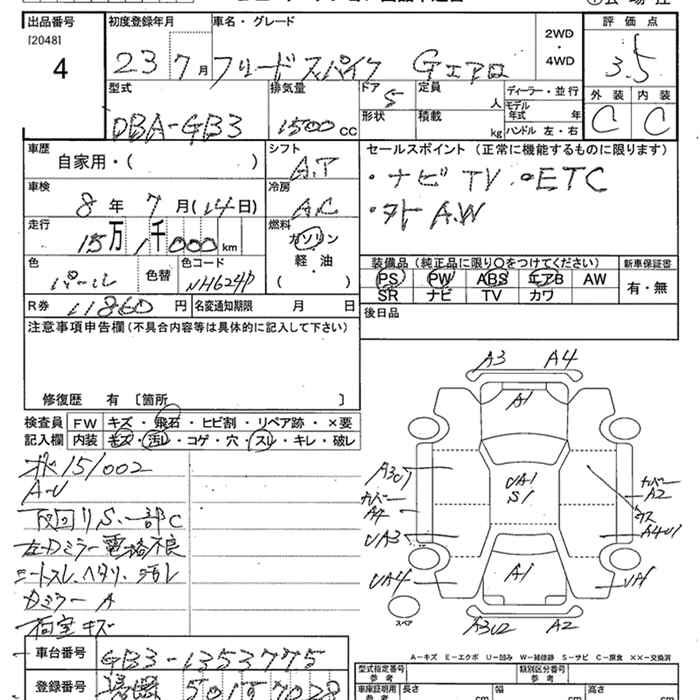 出品番号 初度登録年月 車名・グレード 2WD・4WD 評価点
[2048]
4 23 7月 フリードスパイク Gエアロ 3.5
型式 排気量 ドア 5 定員 人 ディーラー・並行 外装 内装
DBA-GB3 1500 CC 形状 積載 kg モデル年式 年 ハンドル 左・右 C C
車歴 シフト セールスポイント (正常に機能するものに限ります)
自家用・( ) A.T ・ナビ TV ・ETC
車検 冷房
8年 7月(14日) A.C A.W
走行 燃料
15万 1千000km ガソリン
軽・油
( )
装備品 (純正品に限り○をつけてください) 新車保証書
色 パール 色替 色コード NH624P PS PW ABS エアB AW 有・無
SR ナビ TV カワ
R券 11860円 名変通知期限 月 日 後日品
注意事項申告欄 (不具合内容等は具体的に記入して下さい)
修復歴 有 〔箇所 〕
検査員 FW キズ・飛石・ヒビ割・リペア跡・×要
記入欄 内装 キズ・汚レ・コゲ・穴・スレ・キレ・破レ
151002
A-U
下回りS、一部C
左Dミラー電格不良
シートスレ、ヘタリ、汚レ
Dミラー A
荷室キズ
A3 A4
A1
A3U1 UA1 カバー
カバー S1 A2
UA3 A4U1
UA4 A1
スペア A3U2 A2
A-キズ E-エクボ U-凹み W-補修跡 S-サビ C-腐食 ××-交換済
車台番号 GB3-1353775 型式指定番号 参考 類別区分番号 参考
登録番号 車庫証明用 参考 長さ cm 幅 cm 高さ cm